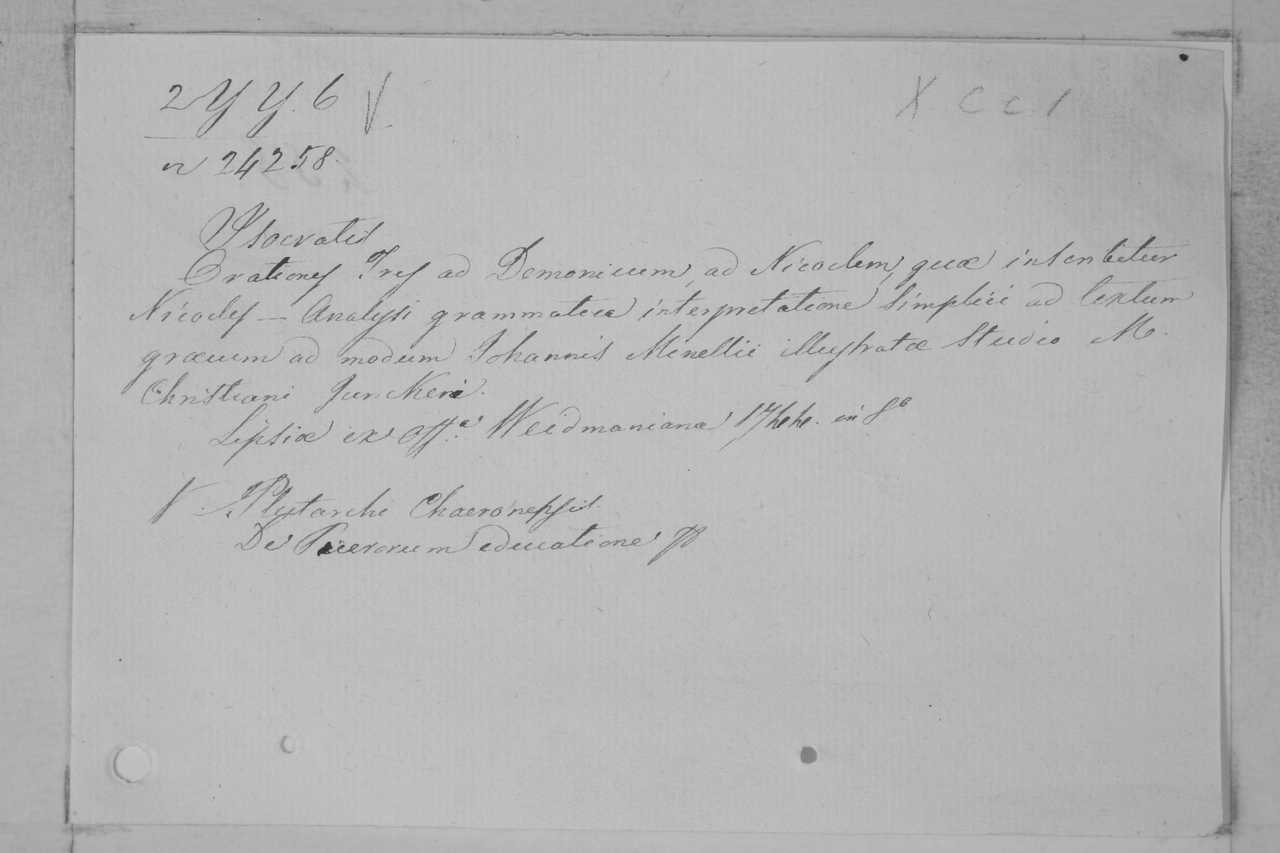 2 Y Y. 6 V. X C C 1
n 24258.
Isocratis
Orationes Tres ad Demonicum, ad Nicoclem, quæ inscribitur
Nicocles — Analysi grammatica interpretatione simplici ad textum
græcum ad modum Johannis Minellii illustratæ studio M.
Christiani Junckeri.
Lipsiæ ex off.a Weidmaniana in 8º
V. Plutarchi Chaeronepsis
De Puerorum educatione